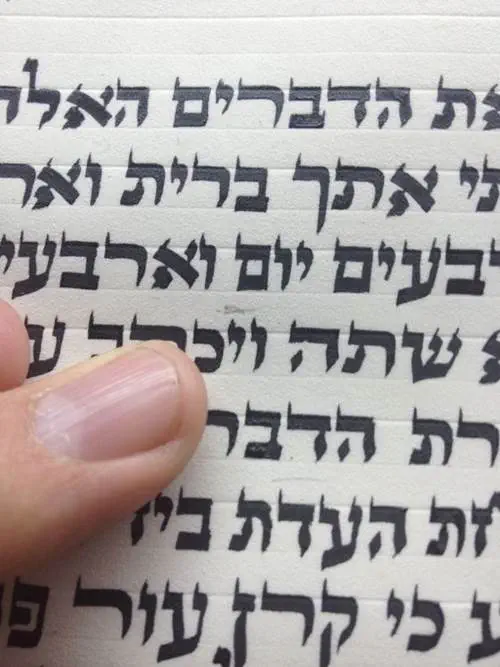 את הדברים האלה
תי אתך ברית ואת
רבעים יום וארבעי
א שתה ויכתב ע
רת הדבר
חת העדת ביד
ע כי קרן עור פנ